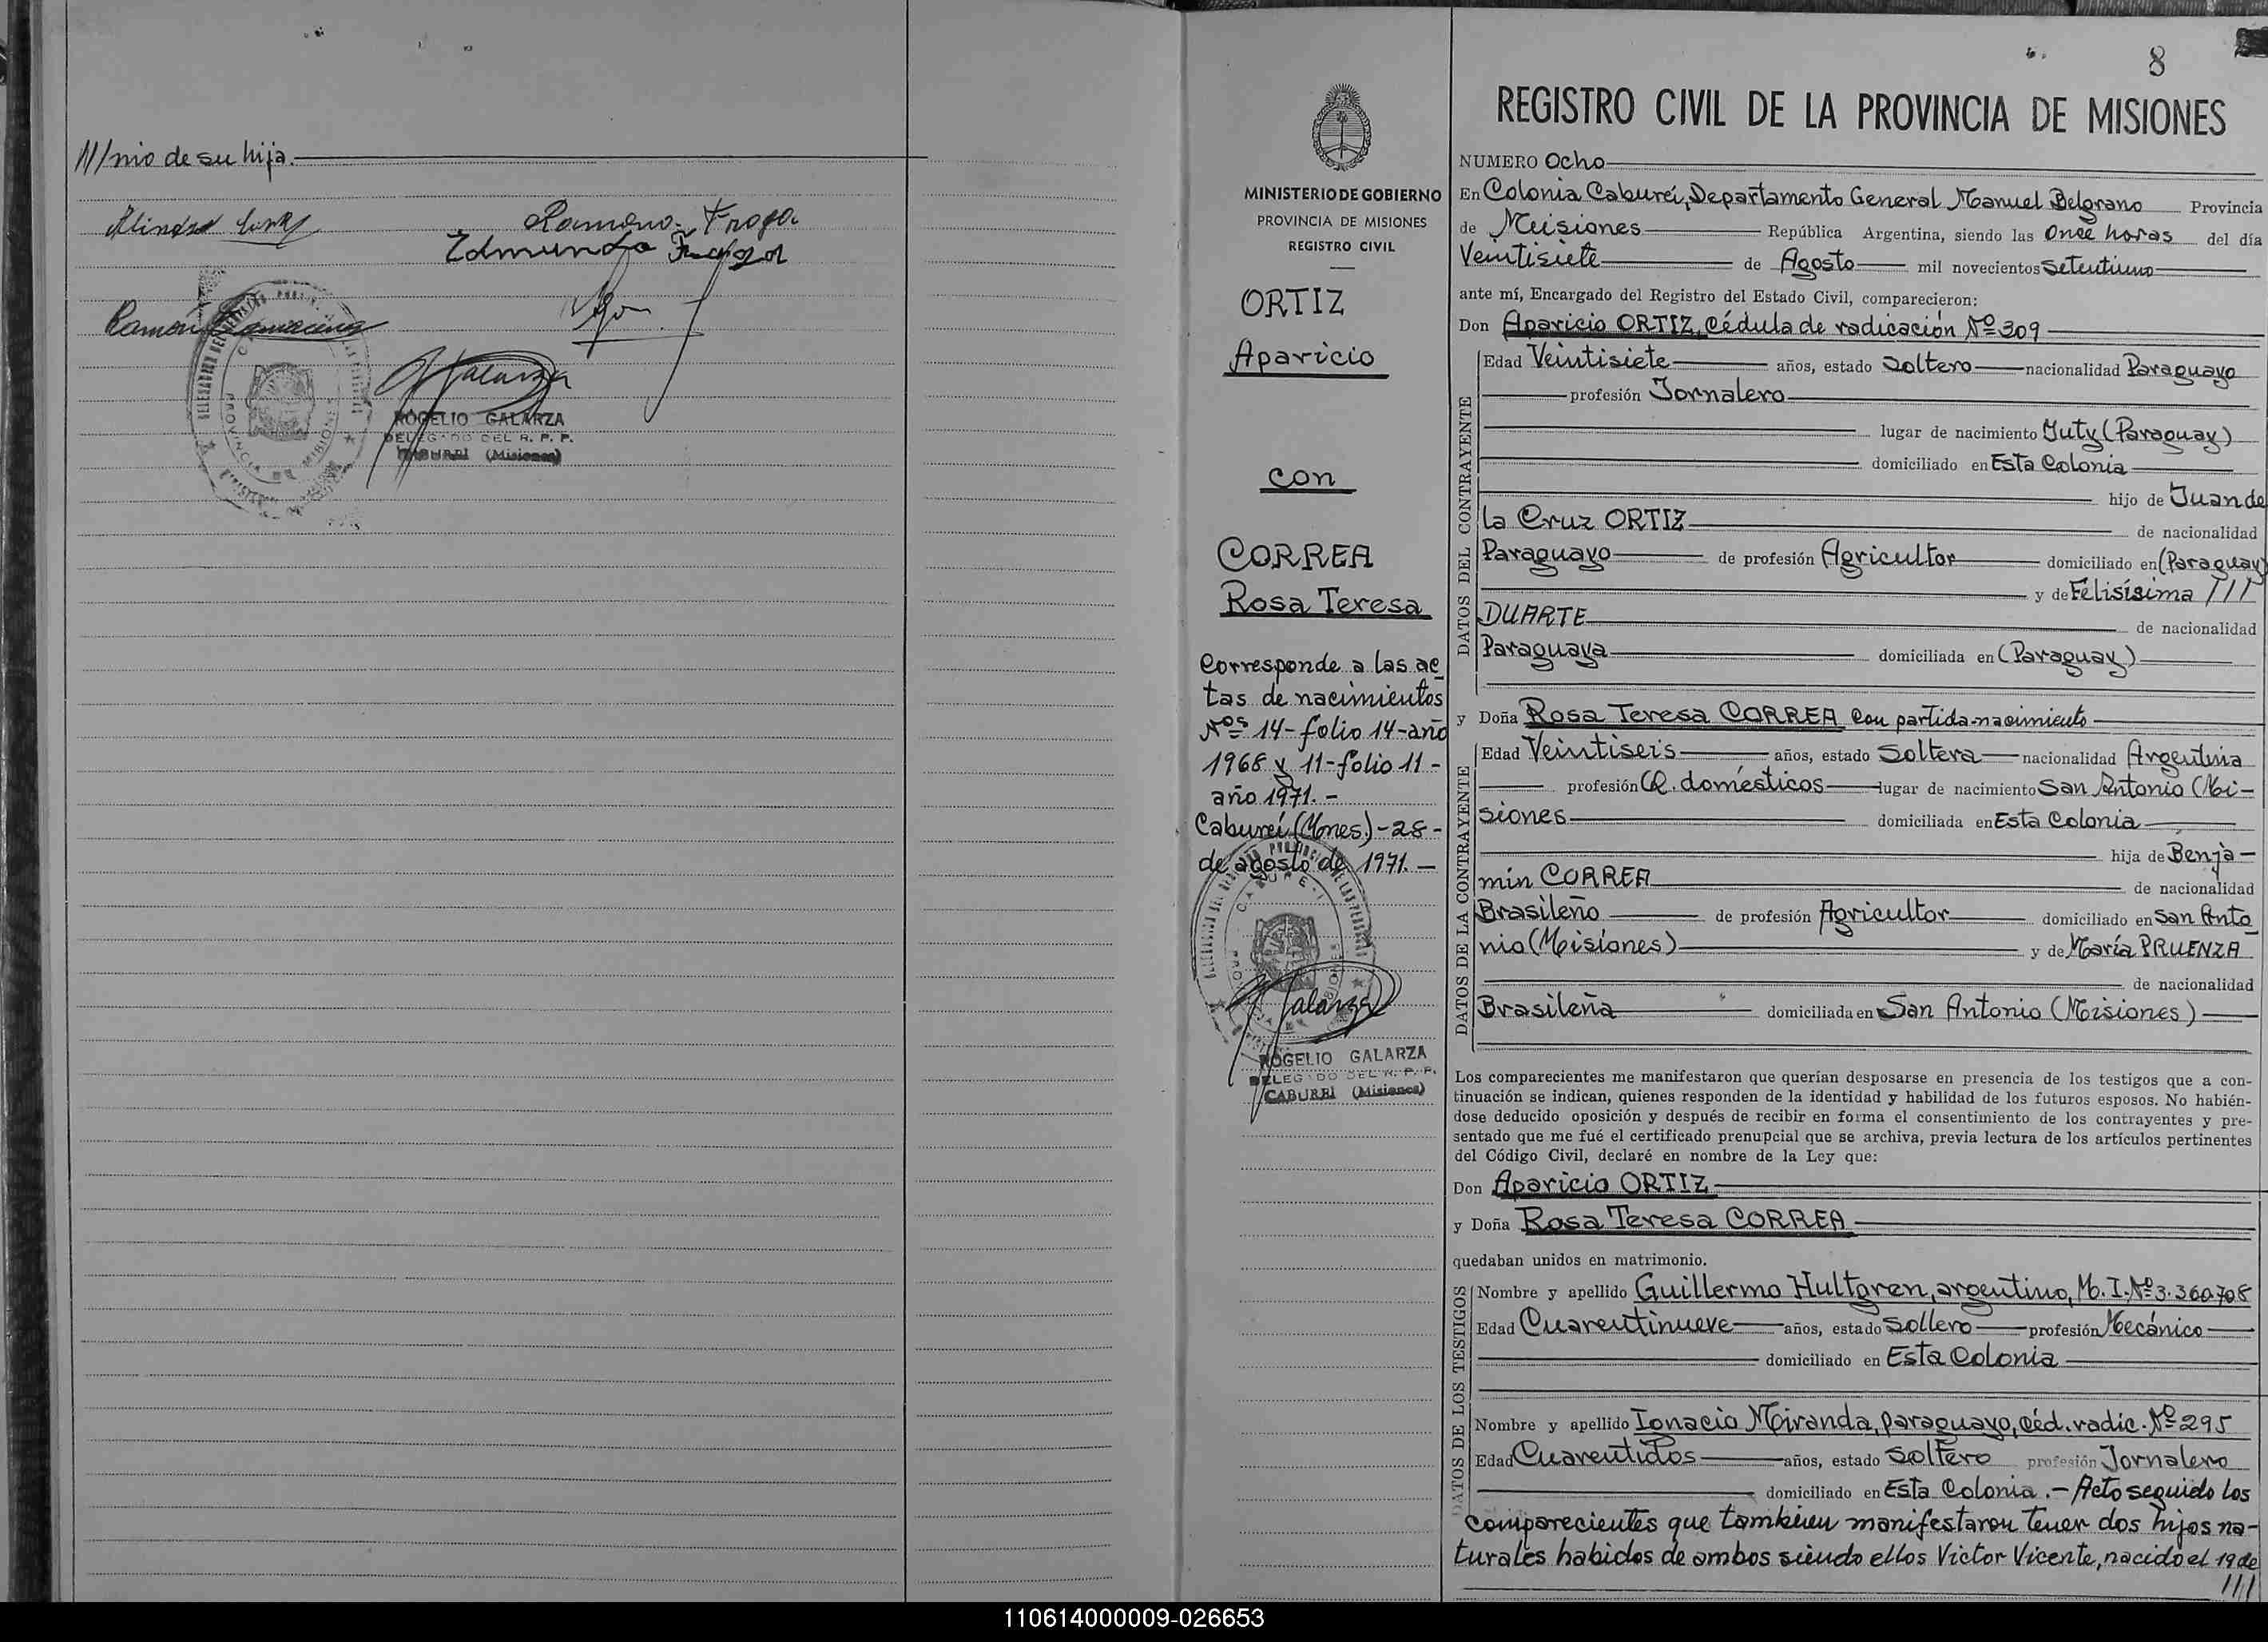 nio de su hija.
Ramona Fraga
Edmundo
Ramón
ROGELIO GALARZA
DELEGADO DEL R. P. P.
CABUREI (Misiones)
8
MINISTERIO DE GOBIERNO
PROVINCIA DE MISIONES
REGISTRO CIVIL
ORTIZ
Aparicio
con
CORREA
Rosa Teresa
Corresponde a las ac
tas de nacimientos
Nos 14-folio 14-año
1968 y 11-folio 11-
año 1971.-
Cabureí (Mnes.)-28-
de agosto de 1971.-
Galarza
ROGELIO GALARZA
DELEGADO DEL R. P. P.
CABUREI (Misiones)
REGISTRO CIVIL DE LA PROVINCIA DE MISIONES
NUMERO Ocho
En Colonia Cabureí, Departamento General Manuel Belgrano Provincia
de Misiones República Argentina, siendo las Once horas del día
Veintisiete de Agosto mil novecientos Setentiuno
ante mí, Encargado del Registro del Estado Civil, comparecieron:
Don Aparicio ORTIZ, Cédula de radicación Nº 309
DATOS DEL CONTRAYENTE
Edad Veintisiete años, estado Soltero nacionalidad Paraguayo
profesión Jornalero
lugar de nacimiento Yuty (Paraguay)
domiciliado en Esta Colonia
hijo de Juan de
la Cruz ORTIZ de nacionalidad
Paraguayo de profesión Agricultor domiciliado en (Paraguay)
y de Felisísima ///
DUARTE de nacionalidad
Paraguaya domiciliada en (Paraguay)
y Doña Rosa Teresa CORREA con partida-nacimiento
DATOS DE LA CONTRAYENTE
Edad Veintiseis años, estado Soltera nacionalidad Argentina
profesión Q. domésticos lugar de nacimiento San Antonio (Mi-
siones domiciliada en Esta Colonia
hija de Benja-
mín CORREA de nacionalidad
Brasileño de profesión Agricultor domiciliado en San Anto
nio (Misiones) y de María PRUENZA
de nacionalidad
Brasileña domiciliada en San Antonio (Misiones)
Los comparecientes me manifestaron que querían desposarse en presencia de los testigos que a con-
tinuación se indican, quienes responden de la identidad y habilidad de los futuros esposos. No habién-
dose deducido oposición y después de recibir en forma el consentimiento de los contrayentes y pre-
sentado que me fué el certificado prenupcial que se archiva, previa lectura de los artículos pertinentes
del Código Civil, declaré en nombre de la Ley que:
Don Aparicio ORTIZ
y Doña Rosa Teresa CORREA
quedaban unidos en matrimonio.
DATOS DE LOS TESTIGOS
Nombre y apellido Guillermo Hultgren, argentino, M. I. Nº 3.360.708
Edad Cuarentinueve años, estado Soltero profesión Mecánico
domiciliado en Esta Colonia
Nombre y apellido Ignacio Miranda, paraguayo, Céd. radic. Nº 295
Edad Cuarentidos años, estado Soltero profesión Jornalero
domiciliado en Esta Colonia.- Acto seguido los
comparecientes que también manifestaron tener dos hijos na-
turales habidos de ambos siendo ellos Victor Vicente, nacido el 19 de
///
110614000009-026653